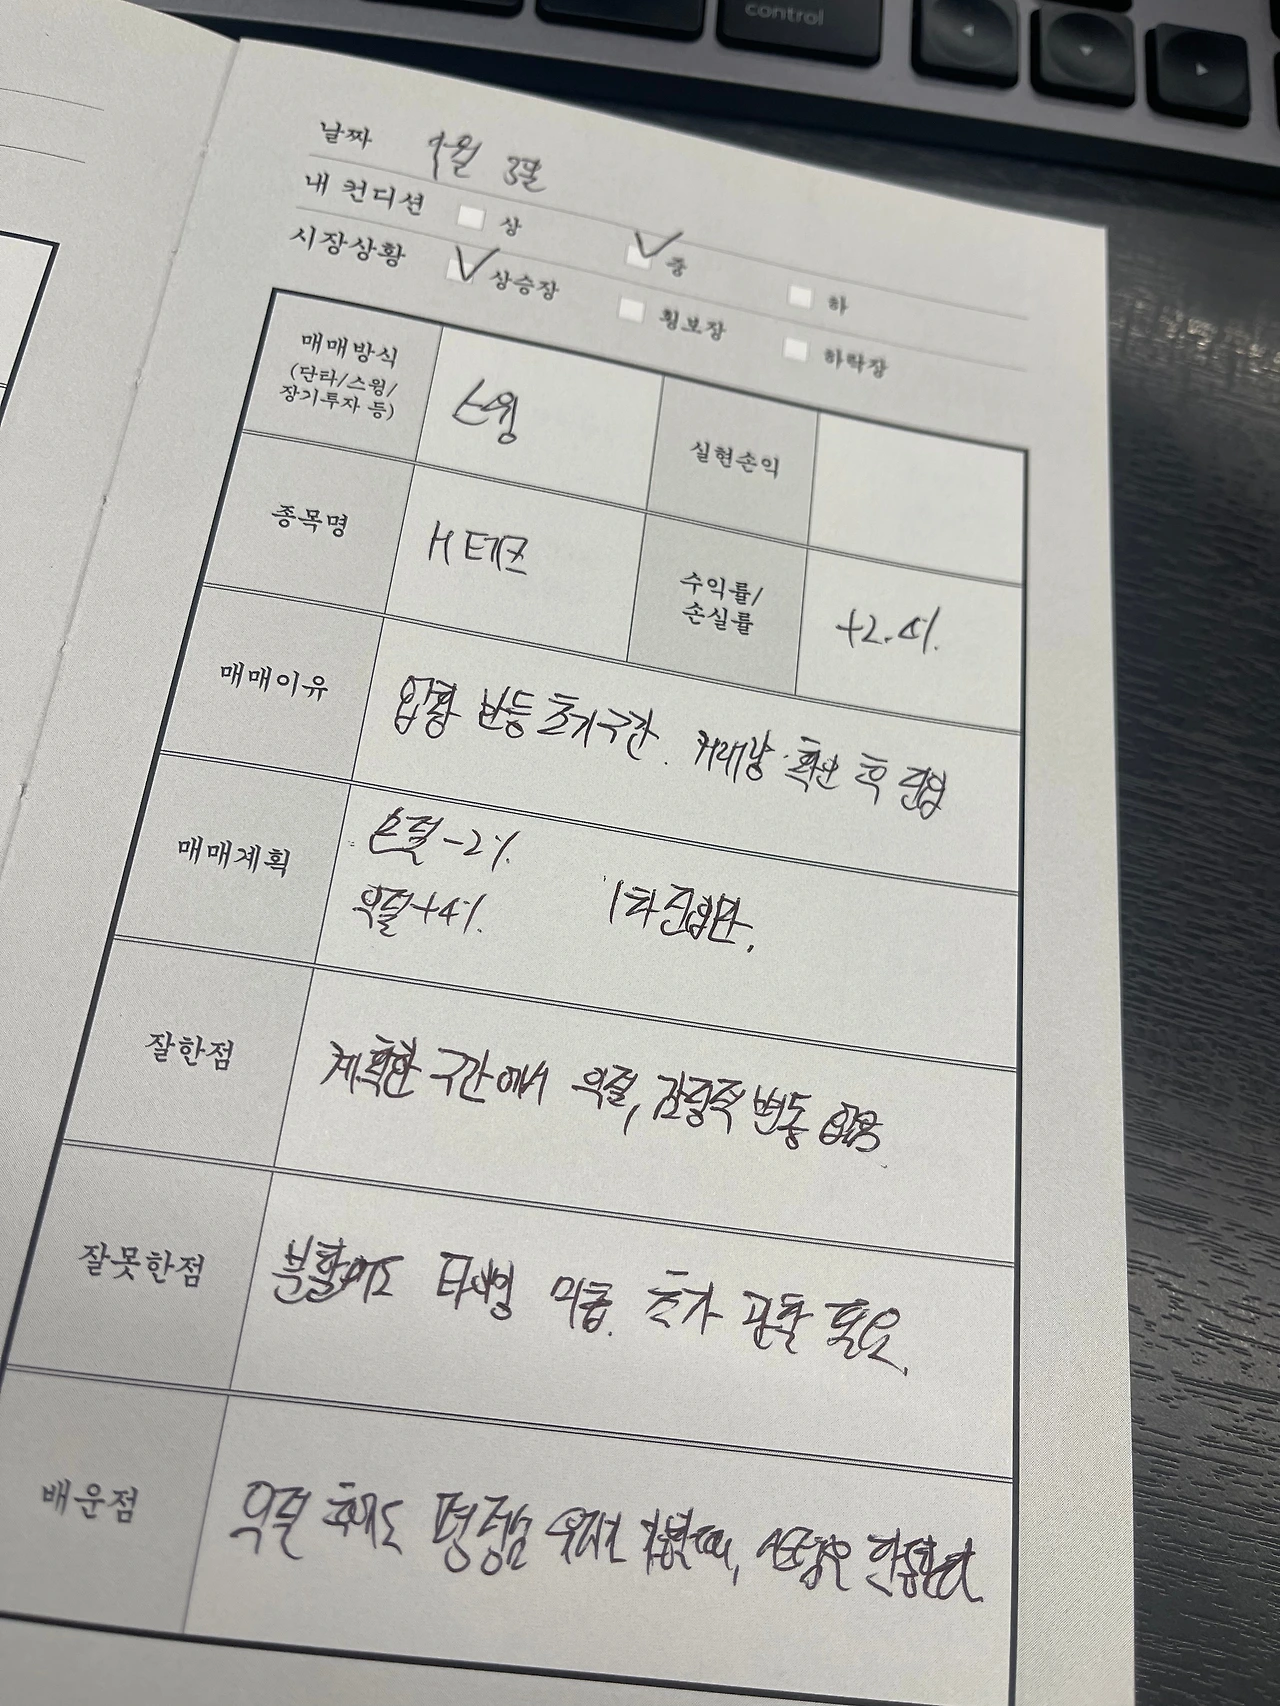 control
날짜 9월 3일
내 컨디션 상 중 하
시장상황 상승장 횡보장 하락장
매매방식
(단타/스윙/
장기투자 등)
스윙
실현손익
종목명
H 테크
수익률/
손실률
+2.4%
매매이유
업황 반등 초기구간. 거래량 확인 후 진입
매매계획
손절 -2%
익절 +4%
1차 진입만.
잘한점
계획한 구간에서 익절, 감정적 변동 없음
잘못한점
분할매도 타이밍 미흡. 추가 관찰 필요.
배운점
익절 후에도 평정심 유지